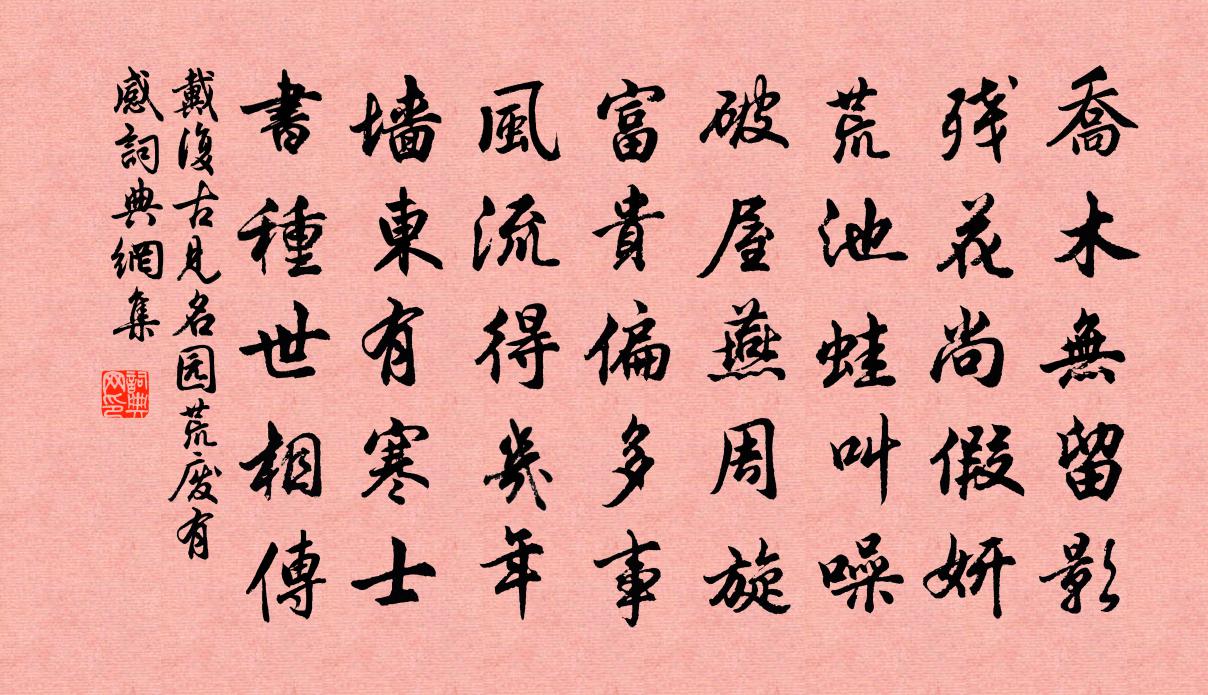 喬木無留影
残花尚假妍
荒池蛙叫噪
破屋燕周旋
富貴偏多事
風流得幾年
墙東有寒士
書種世相傳
戴復古見名园荒废有
感詞典網集
詞典
网印